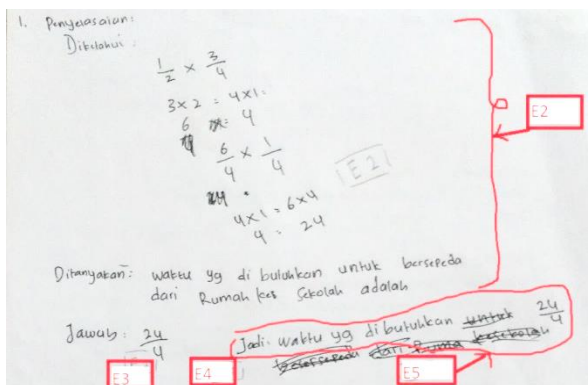 1. Penyelasaian:
Diketahui:
1/2 × 3/4
3×2 = 4×1
6 = 4
6/4 × 1/4
E2
4×1 = 6×4
4 = 24
E2
Ditanyakan: waktu yg di butuhkan untuk bersepeda
dari Rumah kes Sekolah adalah
Jawab: 24/4
Jadi: waktu yg dibutuhkan untuk 24/4
bersepeda dari kesekolah
E3
E4
E5